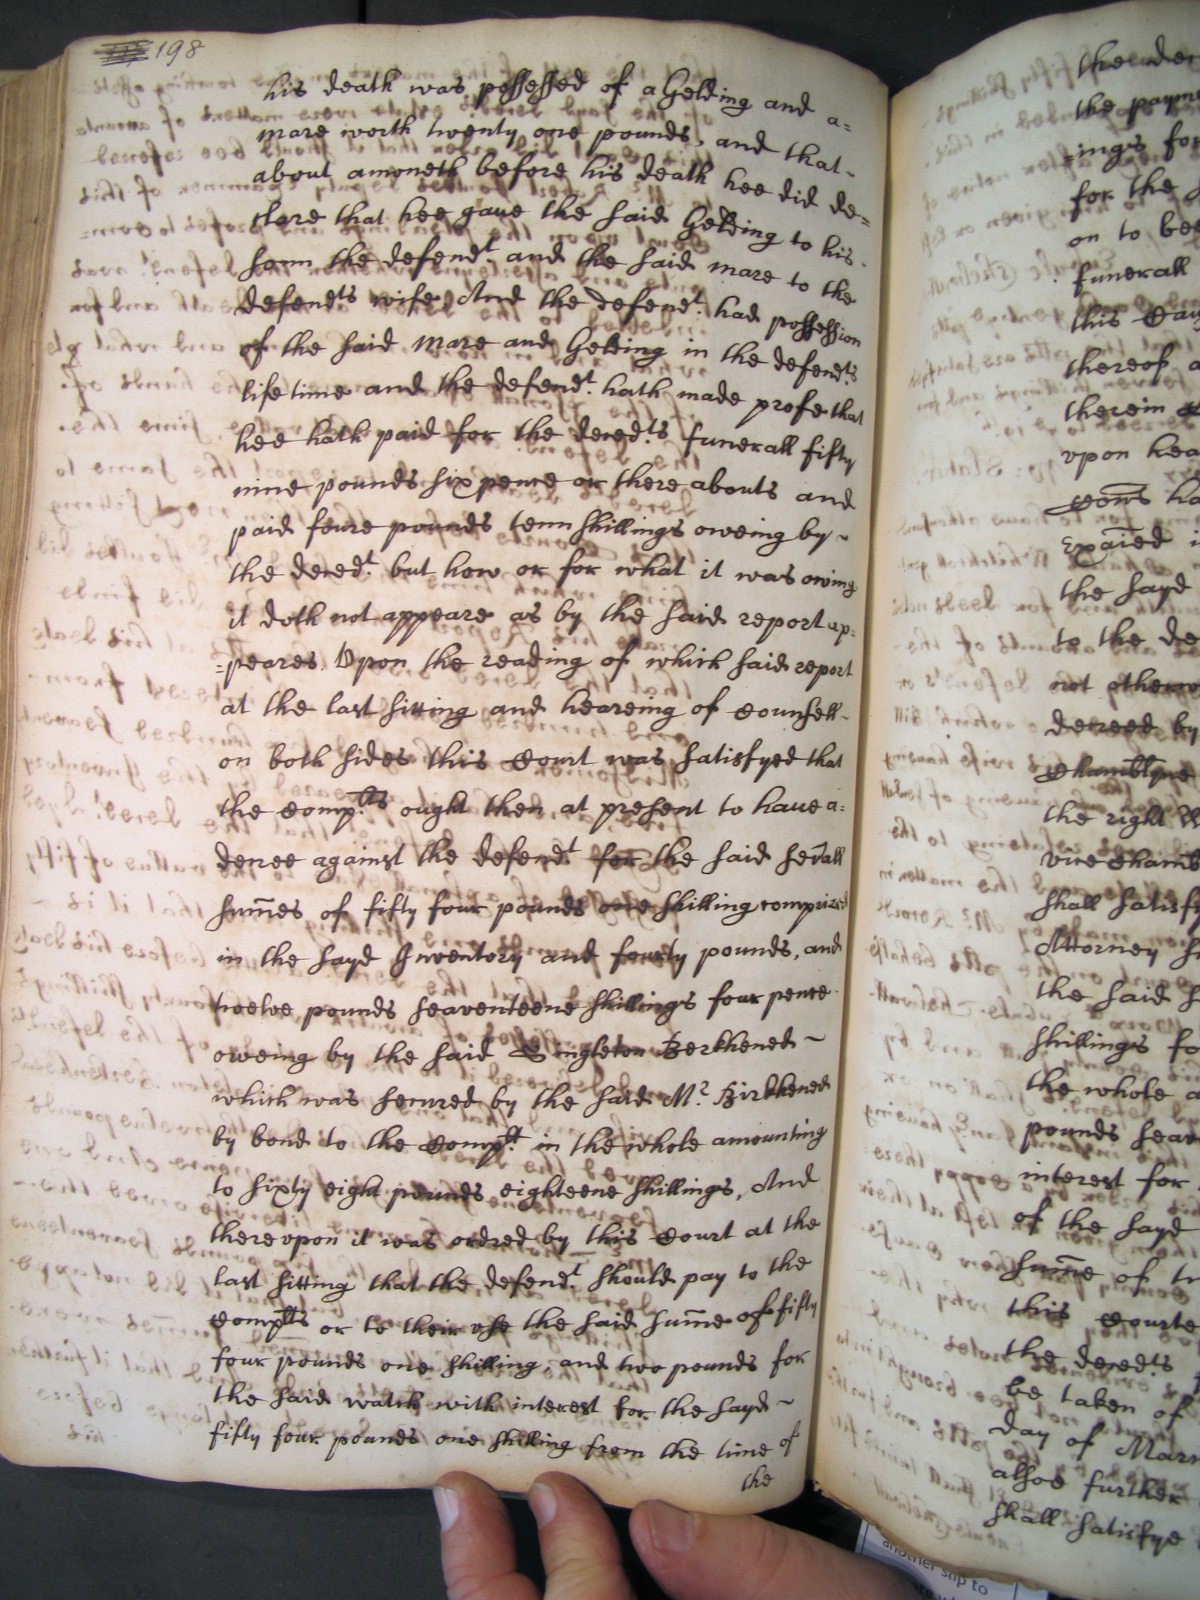 198
his death was possessed of a Gelding and a=
mare worth twenty one pounds, and that
about amoneth before his death hee did de=
clare that hee gave the said Gelding to his
sonn the defendt. and the said mare to the
defendts wife And the defendt. had possession
of the said mare and Gelding in the defendts
life time and the defendt. hath made profe that
hee hath paid for the decedts funerall fifty
nine pounds six pence or there abouts and
paid foure pounds tenn shillings oweing by ~
the decedt. but how or for what it was owing
it doth not appeare as by the said report ap=
=peares. Vpon the reading of which said report
at the last sitting and heareing of Counsell
on both sides this Court was satisfyed that
the Complts ought then at present to have a=
decree against the defendt for the said sev̄all
sum̄es of fifty four pounds one shilling comprized
in the sayd Inventory and fourty pounds, and
twelve pounds seaventeene shillings four pence
oweing by the said Singleton Berkhened ~
which was secured by the said Mr. Birkhened
by bond to the Complt. in the whole amounting
to sixty eight pounds eighteene shillings, And
therevpon it was ordred by this Court at the
last sitting that the defendt should pay to the
Complts or to their vse the said sum̄e of fifty
four pounds one shilling, and two pounds for
the said watch with interest for the sayd ~
fifty four pounds one shilling from the time of
the
the
the
=ings for
for the
on to bee
funerall
this
thereof
therein
vpon
the sayd
to the de
not
decreed by
the right
vice
shall satisf
Attorney
the said
shillings fo
the whole a
pounds seav
interest for
of the sayd
sum̄e of
this Courte
the decedts
be taken of
day of
alsoe further
shall satisfye
another slip to